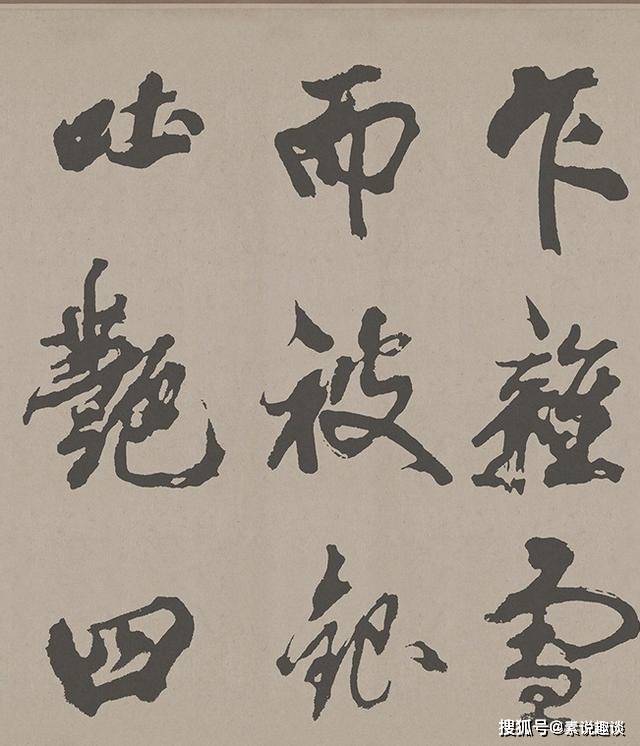 乍雜雪
而被銀
吐艷四
搜狐号@素说趣谈